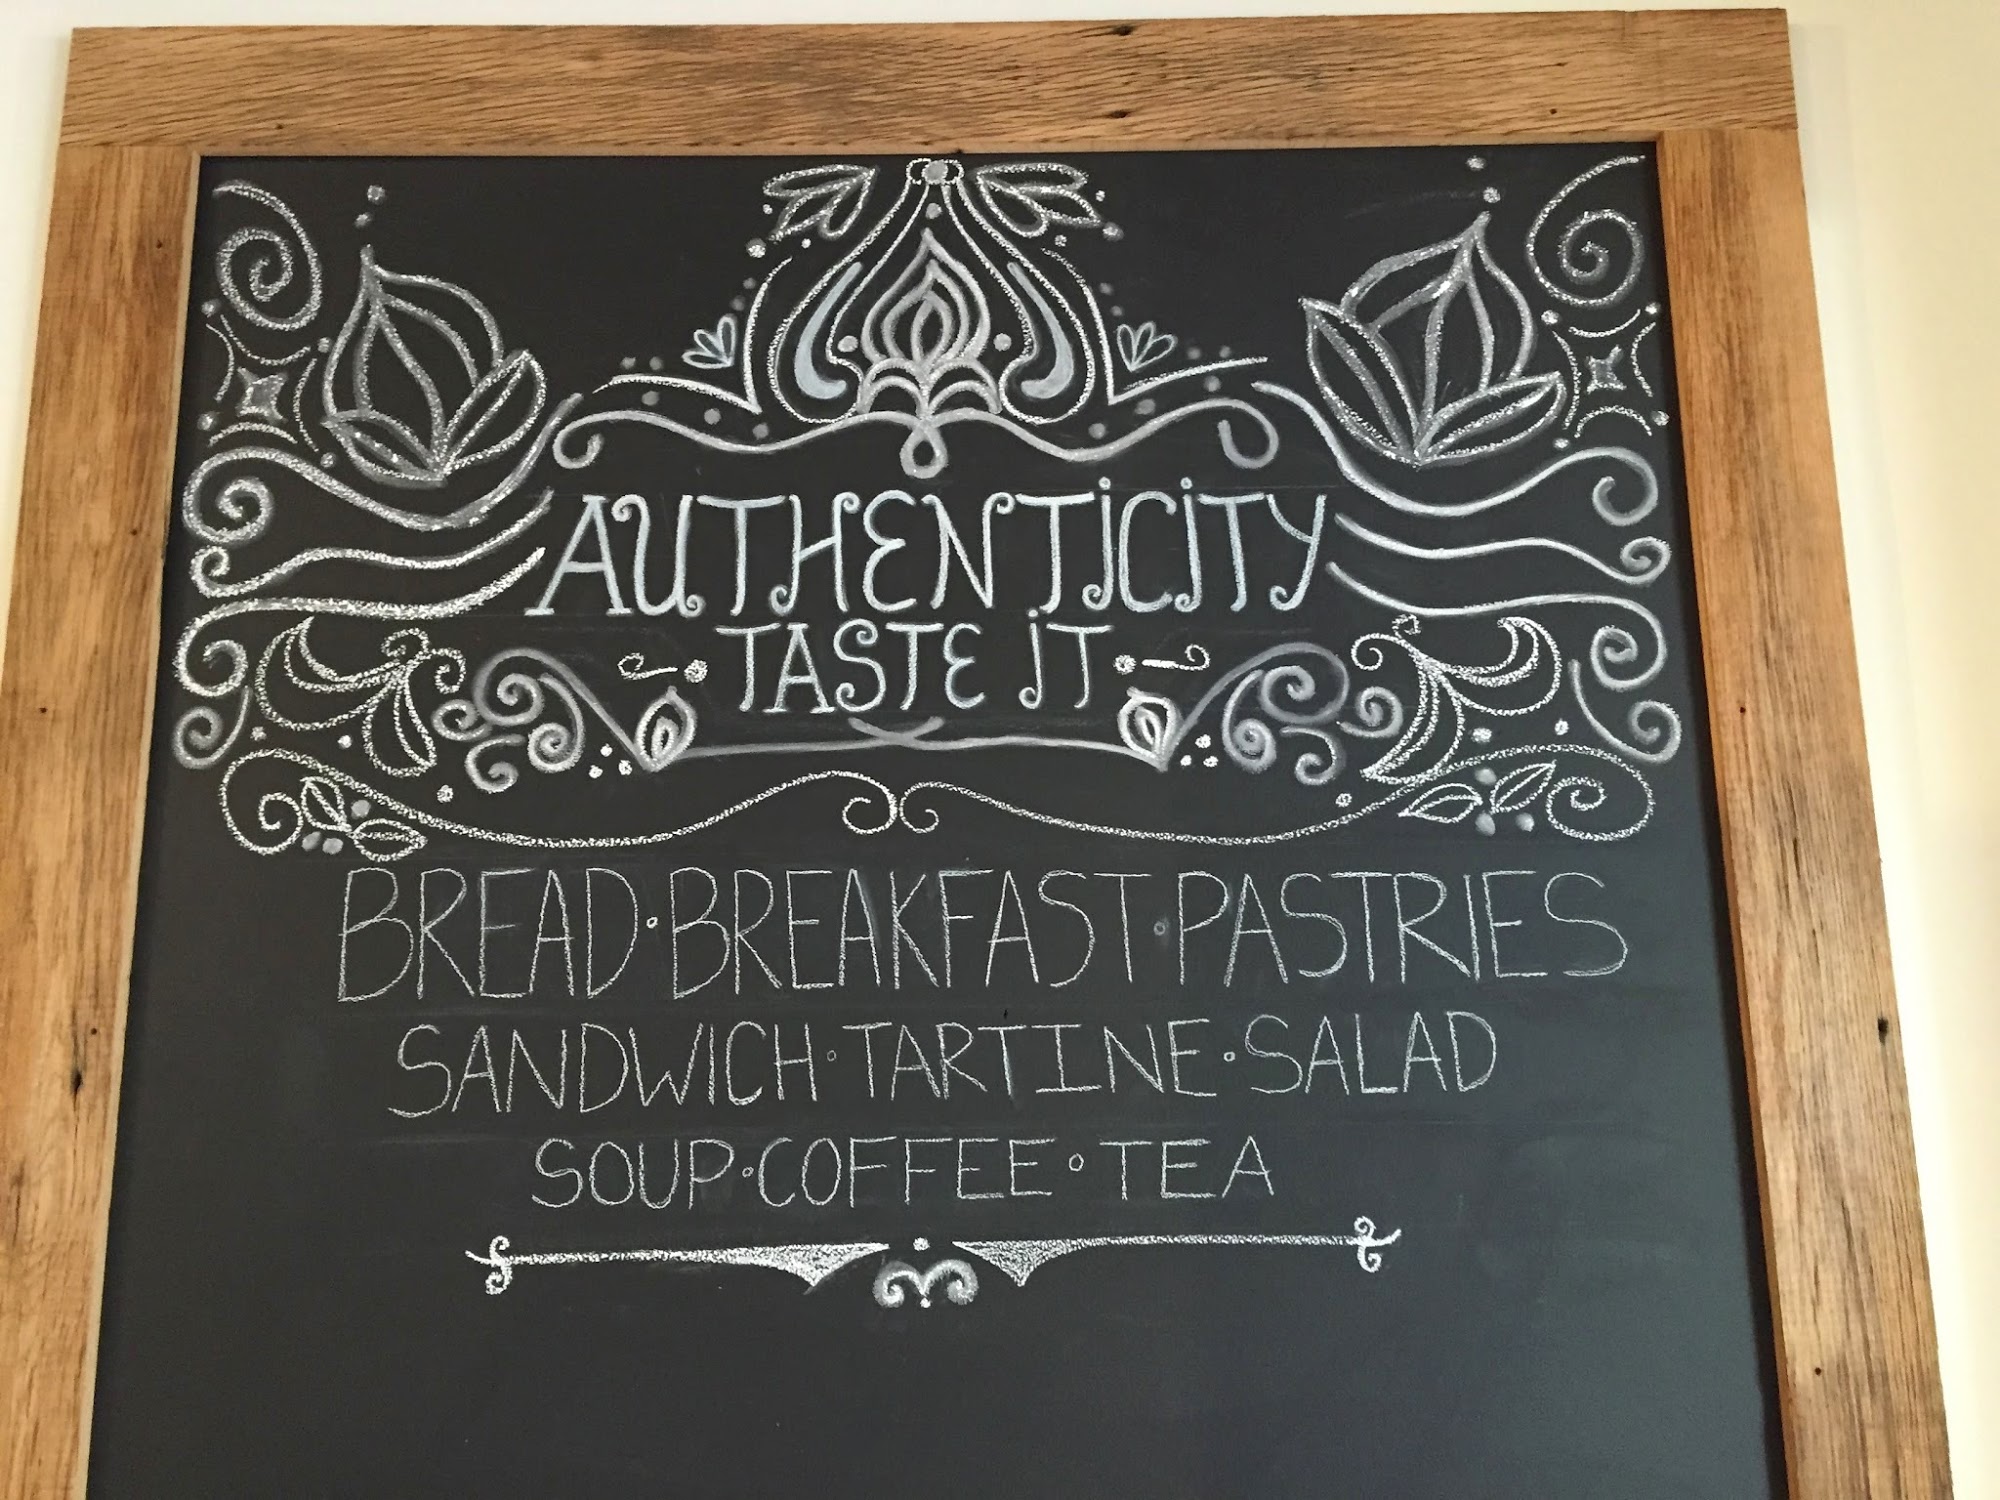 AUTHENTICITY
TASTE iT
BREAD • BREAKFAST • PASTRIES
SANDWICH • TARTINE • SALAD
SOUP • COFFEE • TEA